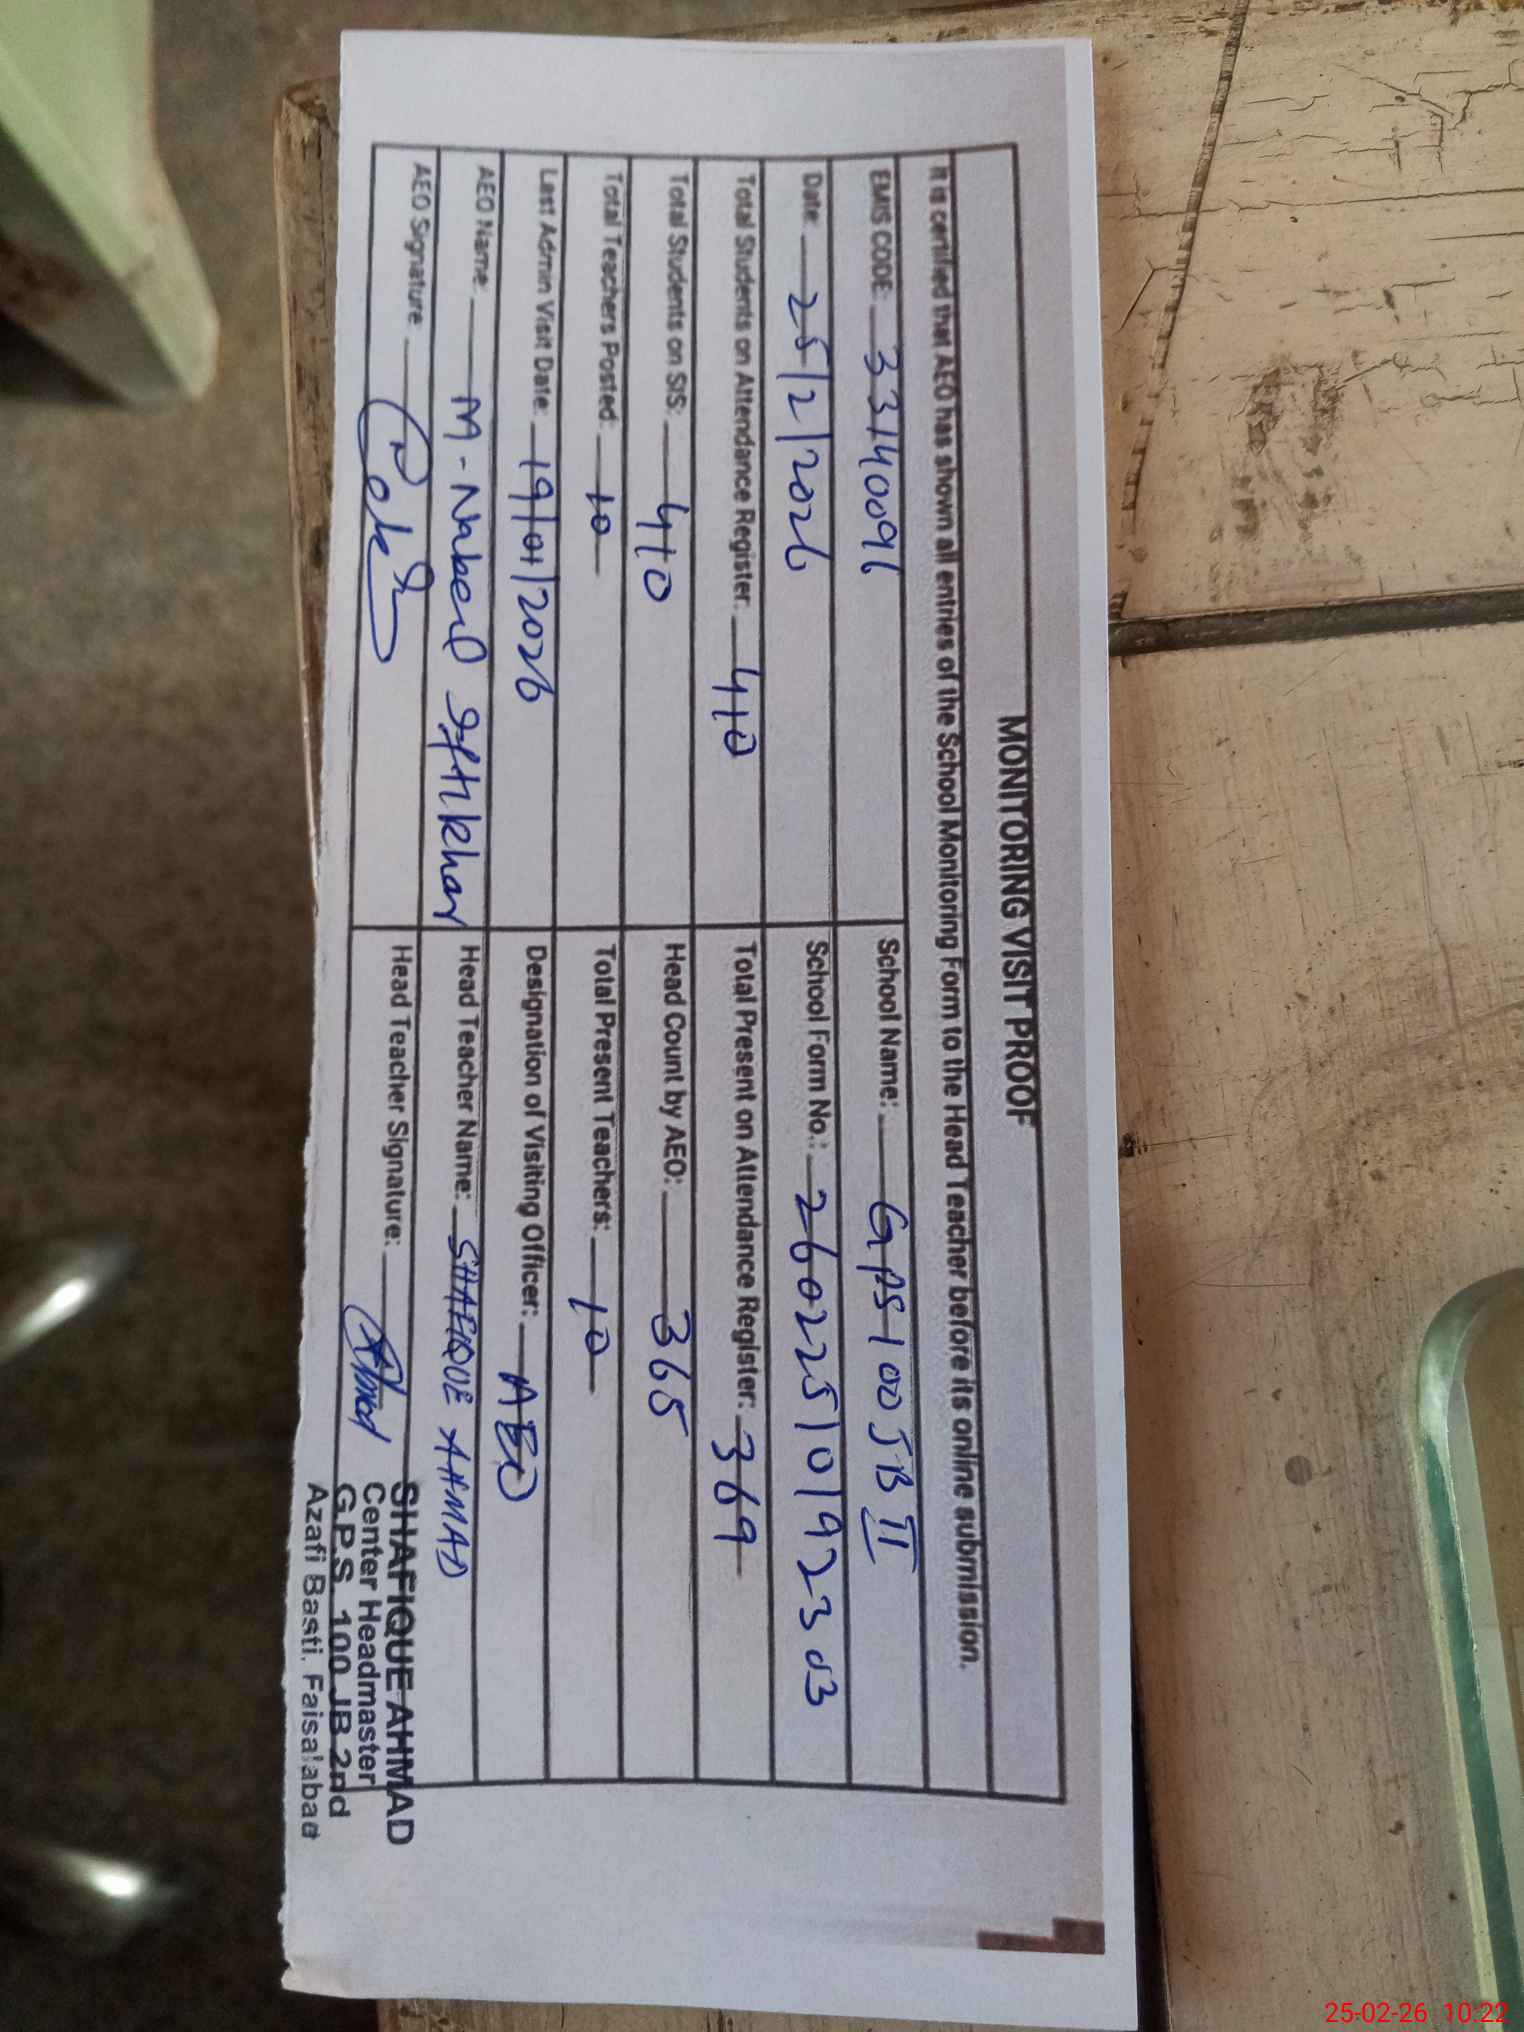 MONITORING VISIT PROOF
It is certified that AEO has shown all entries of the School Monitoring Form to the Head Teacher before its online submission.
EMIS CODE: 33140096 School Name: GPS 100 JB II
Date: 25/2/2026 School Form No.: 26022510192303
Total Students on Attendance Register: 410 Total Present on Attendance Register: 369
Total Students on SIS: 410 Head Count by AEO: 365
Total Teachers Posted: 10 Total Present Teachers: 10
Last Admin Visit Date: 19/01/2026 Designation of Visiting Officer: AEO
AEO Name: M-Nabeel Iftikhar Head Teacher Name: SHAFIQUE AHMAD
AEO Signature: Head Teacher Signature: Ahmad
SHAFIQUE AHMAD
Center Headmaster
G.P.S 100 JB 2nd
Azafi Basti. Faisalabad
25-02-26 10:22